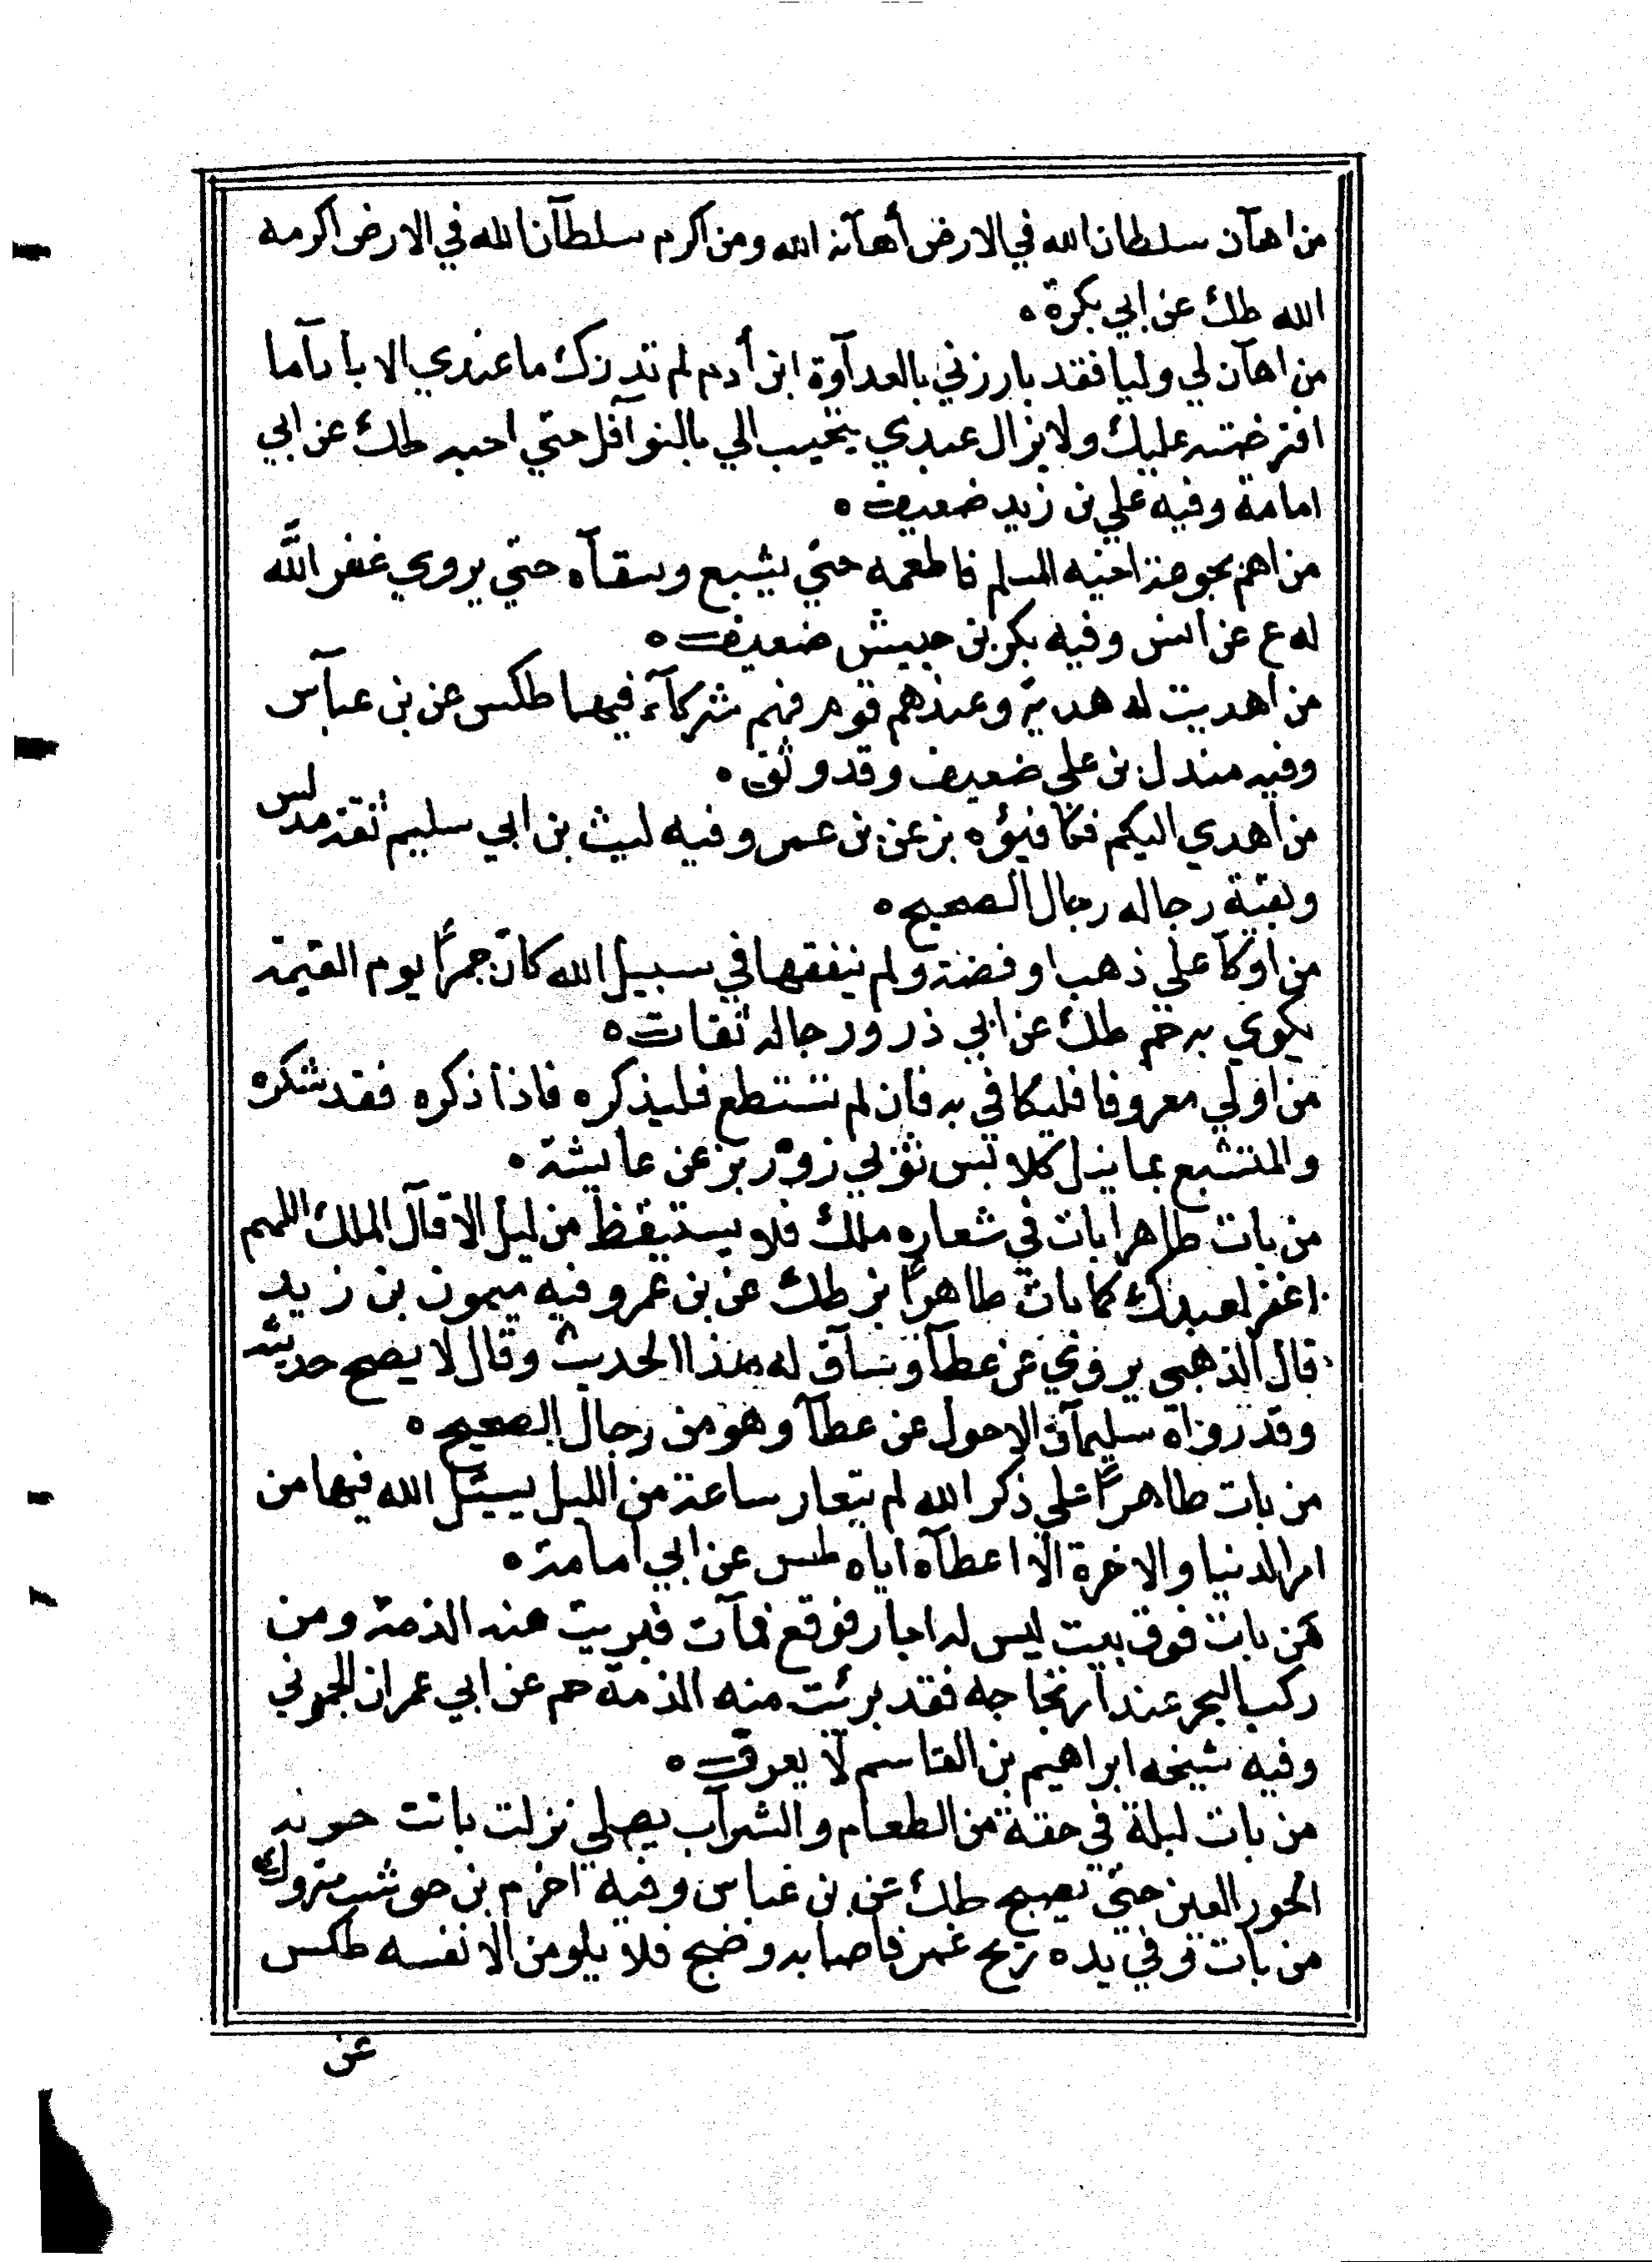 من اهآن سلطان الله في الارض أهآنه الله ومن اكرم سلطآن الله في الارض اكرمه
الله طك عن ابي بكرة ه
من اهآن لي وليا فقد بارزني بالعدآوة ابن أدم لم تدرك ما عندي الا بادآما
افترضته عليك ولا يزال عبدي يتحبب الي بالنوآفل حتي احبه طك عن ابي
امامة وفيه علي بن زيد ضعيف ه
من اهم بجوعة اخيه المسلم فاطعمه حتي يشبع وسقآه حتي يروي غفر الله
له ع عن انس وفيه بكر بن حبيش ضعيف ه
من اهديت له هدية وعندهم قوم فهم شركآء فيها طكس عن بن عبآس
وفيه مندل بن علي ضعيف وقد وثق ه
من اهدي اليكم فكافئوه بز عن بن عمر وفيه ليث بن ابي سليم ثقة مدلس
وبقية رجاله رجال الصحيح ه
من اوكآ علي ذهب او فضة ولم ينفقها في سبيل الله كان جمرًا يوم القيمة
يكوي به حم طك عن ابي ذر ورجاله ثقات ه
من اولي معروفا فليكافي به فان لم تستطع فليذكره فاذا ذكره فقد شكره
والمتشبع بما ينل كلابس ثوبي زور بز عن عايشة ه
من بات طاهرا بات في شعاره ملك فلا يستيقظ من ليل الا قآل الملك اللهم
اغفر لعبدك كما بات طاهرًا بز طك عن بن عمر وفيه ميمون بن زيد
قال الذهبي يروي عن عطآ وسآق له هذا الحديث وقال لا يصح حديثه
وقد رواه سليمآن الاحول عن عطآ وهو من رجال الصحيح ه
من بات طاهرًا علي ذكر الله لم يتعار ساعة من الليل يسئل الله فيها من
امر الدنيا والاخرة الا اعطآه اياه طس عن ابي امامة ه
من بات فوق بيت ليس له اجار فوقع فمآت فبريت منه الذمة ومن
ركب البحر عند ارتجاجه فقد برئت منه الذمة حم عن ابي عمران الجوني
وفيه شيخه ابراهيم بن القاسم لا يعرف ه
من بات ليلة في خفة من الطعام والشرآب يصلي نزلت باتت حوله
الحور العين حتي يصبح طك عن بن عباس وفيه اخرم بن حوشب متروك
من بات وفي يده ريح غمر فاصابه وضح فلا يلومن الا نفسه طكس
عن